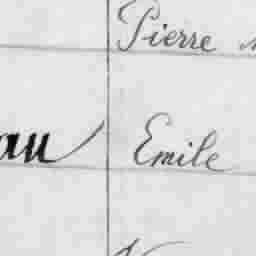 Pierre
au Emile